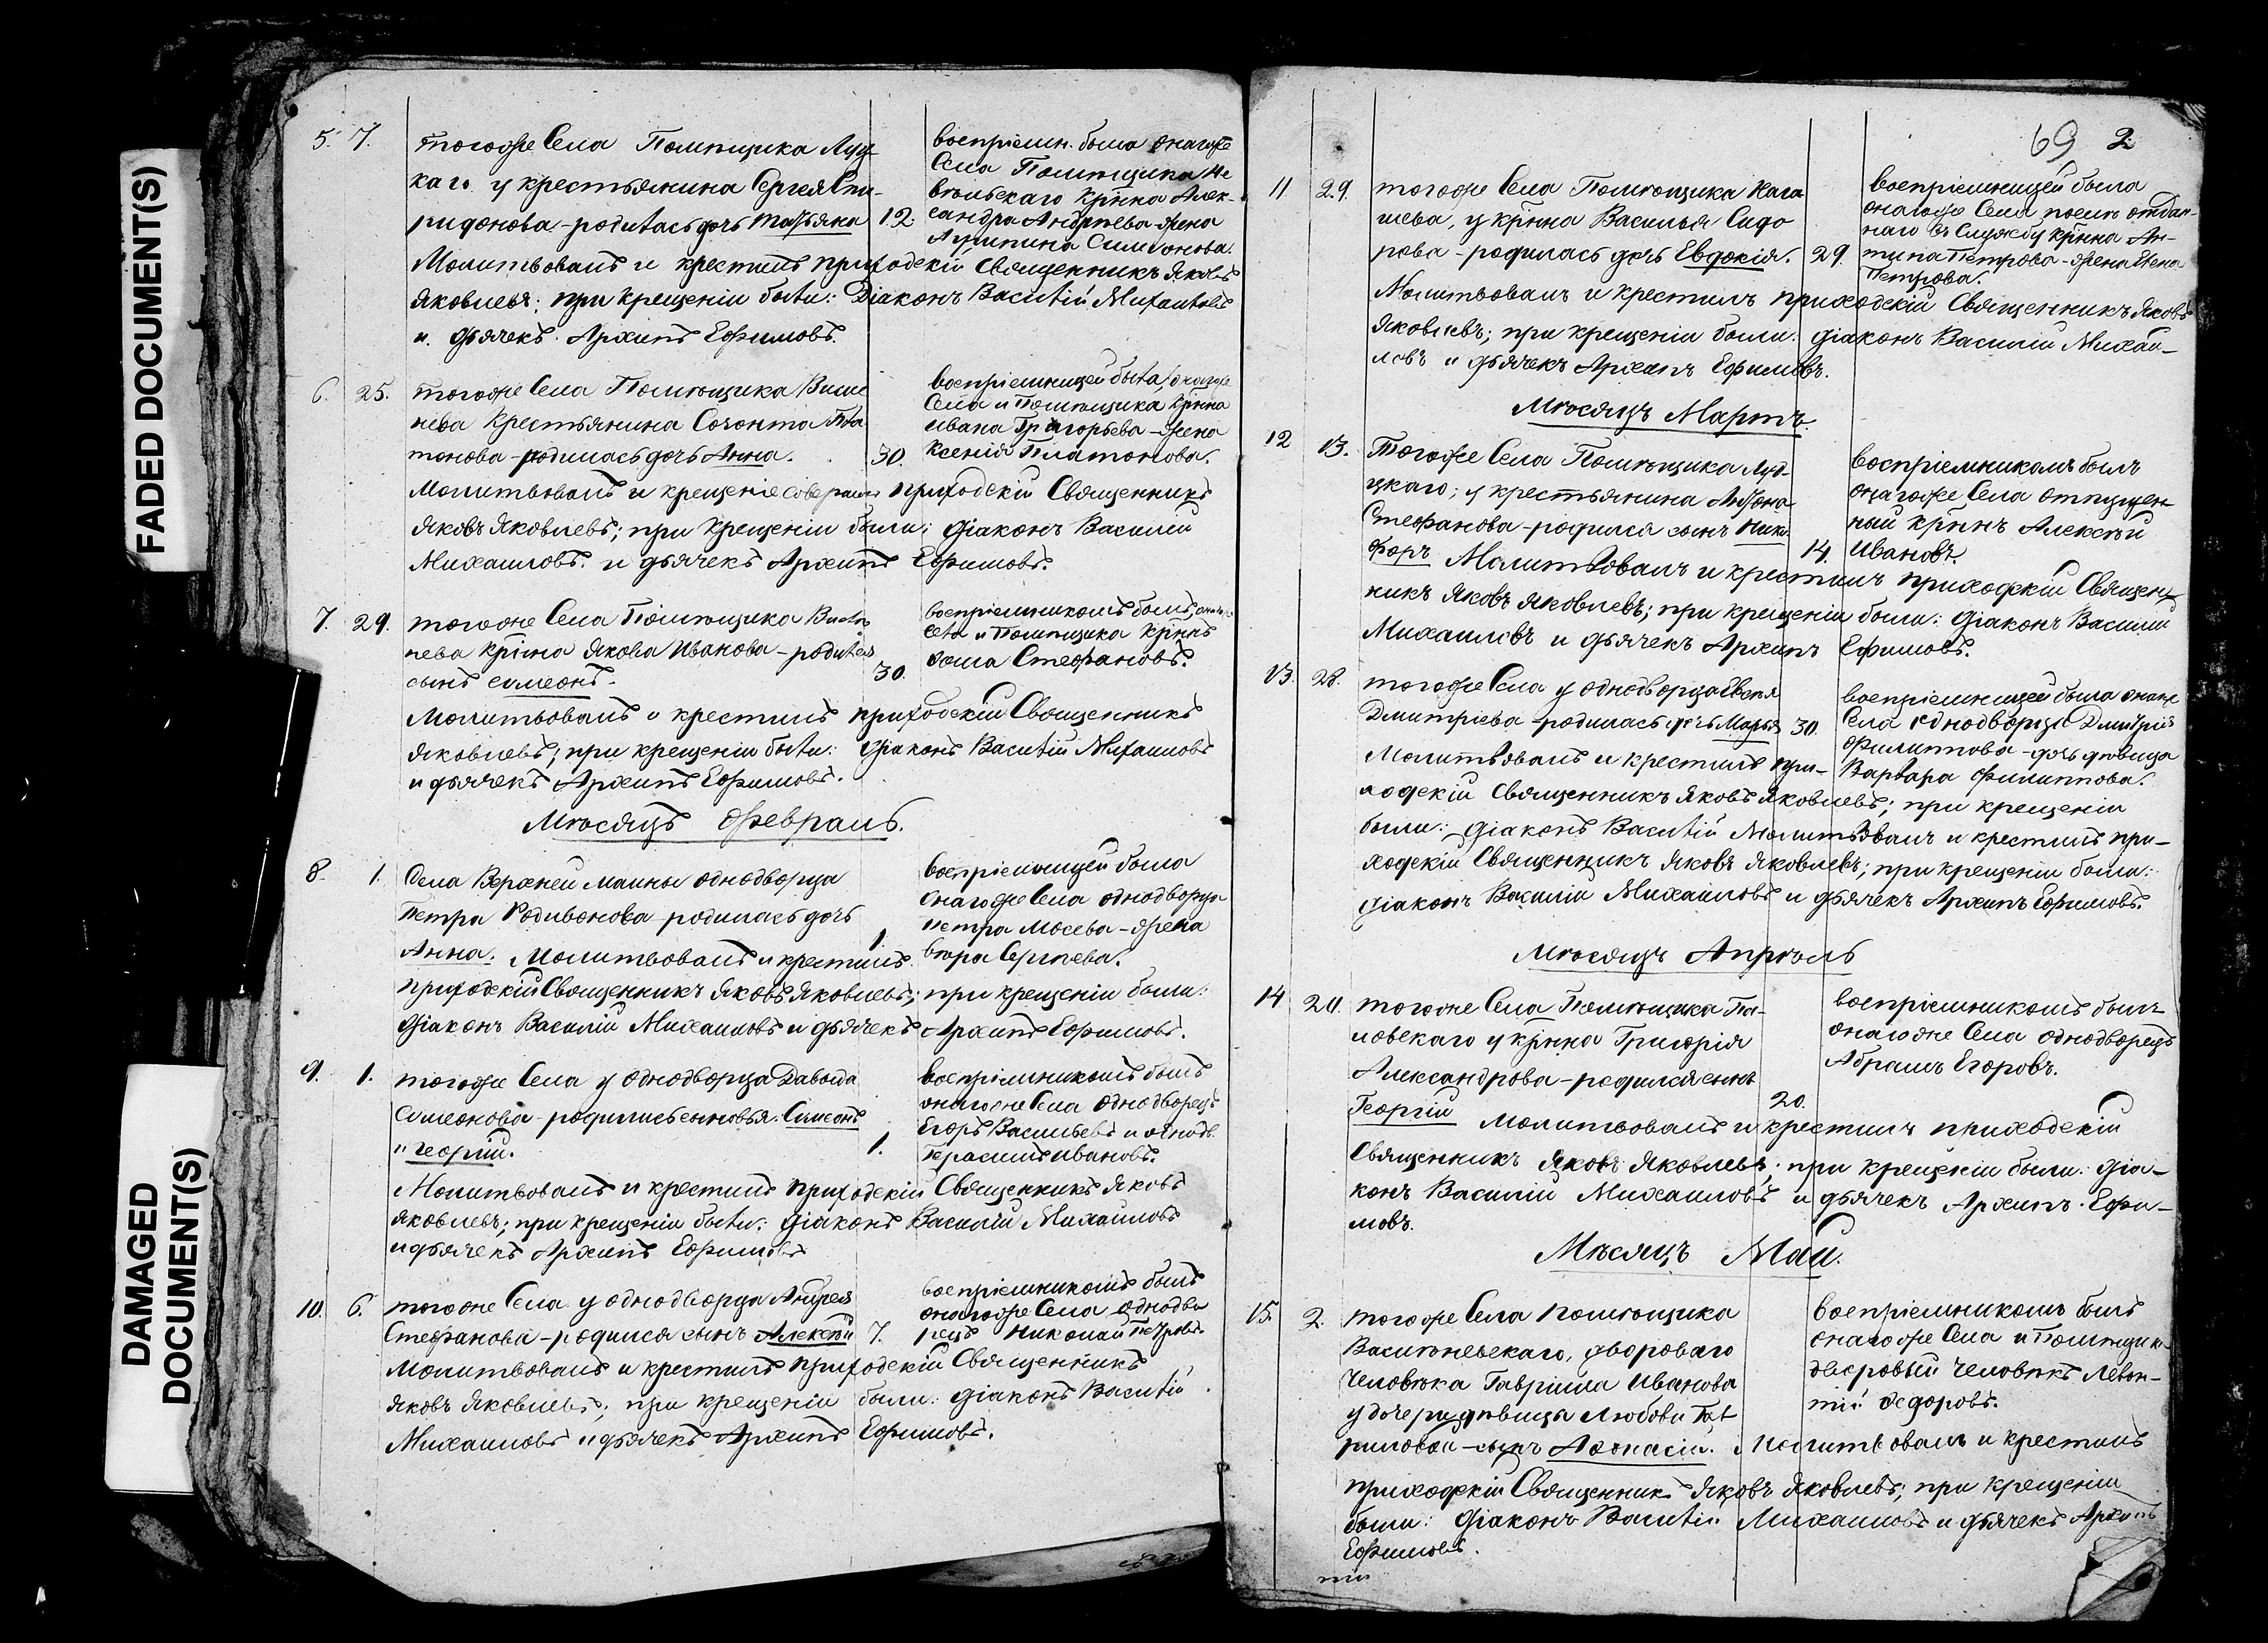 FADED DOCUMENT(S)
DAMAGED
DOCUMENT(S)
5. 7.
тогоже Села Помѣщика Луц
каго у крестьянина Сергея Спи-
ридонова - родилась дочь Татьяна 12.
воспріемн. была онагоже
Села Помѣщика
крⷭ҇нна Алек-
сандра Андрѣева жена
Симіонова.
Молитвовалъ и крестилъ приходскій Священникъ Яковъ
Яковлевъ; при крещеніи были: Діаконъ Василій Михаиловъ
и дьячекъ Архипъ Ефимовъ.
6. 25.
тогоже Села Помѣщика Више
нева Крестьянина Созонта Пла
тонова - родилась дочь Анна. 30.
воспріемницей была онагоже
Села и Помѣщика крⷭ҇нна
Ивана Григорьева - жена
Ксенія Платонова.
Молитвовалъ и крещеніе совершилъ приходскій Священникъ
Яковъ Яковлевъ; при крещеніи были: діаконъ Василій
Михаиловъ и дьячекъ Архипъ Ефимовъ.
7. 29.
тогоже Села Помѣщика Вишн
нева крⷭ҇нна Якова Иванова - родился
сынъ Симеонъ. 30.
воспріемникомъ былъ онагоже
Села и Помѣщика крⷭ҇нъ
Фома Стефановъ.
Молитвовалъ и крестилъ приходскій Священникъ
Яковлевъ; при крещеніи были: діаконъ Василій Михаиловъ
и дьячекъ Архипъ Ефимовъ.
Мѣсяцъ Февраль.
8. 1.
Села Верхней Маины однодворца
Петра Родивонова родилась дочь 1.
воспріемницей была
онагоже Села однодворца
Петра Мосева - жена
Вѣра Сергѣева.
Анна. Молитвовалъ и крестилъ
приходскій Священникъ Яковъ Яковлевъ; при крещеніи были:
діаконъ Василій Михаиловъ и дьячекъ Архипъ Ефимовъ.
9. 1.
тогоже Села у однодворца Давыда
Симеонова - родились сыновья: Симеонъ
и Георгій. 1.
воспріемникомъ былъ
онагоже Села однодворецъ
Егоръ Васильевъ и однодв.
Герасимъ Ивановъ.
Молитвовалъ и крестилъ приходскій Священникъ Яковъ
Яковлевъ; при крещеніи были: діаконъ Василій Михаиловъ
и дьячекъ Архипъ Ефимовъ
10. 6.
тогоже Села у однодворца Андрея
Стефанова - родился сынъ Алексѣй 7.
воспріемникомъ былъ
онагоже Села однодво
рецъ Николай Петровъ.
Молитвовалъ и крестилъ приходскій Священникъ
Яковъ Яковлевъ; при крещеніи были: діаконъ Василій
Михаиловъ и дьячекъ Архипъ Ефимовъ.
69 2
11 29.
тогоже Села Помѣщика Кага
шева, у крⷭ҇нна Василья Сидо
рова - родилась дочь Евдокія. 29.
воспріемницей была
онагоже Села отдан-
наго въ Службу крⷭ҇нна Ан-
типа Петрова - жена Елена
Петрова.
Молитвовалъ и крестилъ приходскій Священникъ Яковъ
Яковлевъ; при крещеніи были: діаконъ Василій Михаи-
ловъ и дьячекъ Архипъ Ефимовъ.
Мѣсяцъ Мартъ.
12 13.
Тогоже Села Помѣщика Лут-
цкаго; у крестьянина Антона
Стефанова - родился сынъ Ники
форъ 14.
воспріемникомъ былъ
онагоже Села отпущен-
ный крⷭ҇нъ Алексѣй
Ивановъ.
Молитвовалъ и крестилъ приходскій Священ-
никъ Яковъ Яковлевъ; при крещеніи были: діаконъ Василій
Михаиловъ и дьячекъ Архипъ Ефимовъ.
13. 28.
тогоже Села у однодворца
Дмитріева - родилась дочь Марья 30.
воспріемницей была онаго
Села однодворца Дмитрія
Филиппова - дочь дѣвица
Варвара Филиппова.
Молитвовалъ и крестилъ при-
ходскій Священникъ Яковъ Яковлевъ; при крещеніи
были: діаконъ Василій Молитвовалъ и крестилъ при-
ходскій Священникъ Яковъ Яковлевъ; при крещеніи были:
діаконъ Василій Михаиловъ и дьячекъ Архипъ Ефимовъ.
Мѣсяцъ Апрѣль
14 20.
тогоже Села Помѣщика Па-
ловскаго у крⷭ҇нна Григорія
Александрова - родился сынъ
Георгій 20.
воспріемникомъ былъ
онагоже Села однодворецъ
Абрамъ Егоровъ.
Молитвовалъ и крестилъ приходскій
Священникъ Яковъ Яковлевъ; при крещеніи были: діа-
конъ Василій Михаиловъ и дьячекъ Архипъ Ефи-
мовъ.
Мѣсяцъ Май.
15. 2.
тогоже Села помѣщика
двороваго
Человѣка Гавріила Иванова
у дочери дѣвицы Любови Гав
риловой - сынъ Афонасій.
воспріемникомъ былъ
онагоже Села и Помѣщик.
дворовый Человѣкъ Левон-
тій Федоровъ.
Молитвовалъ и крестилъ
приходскій Священникъ Яковъ Яковлевъ; при крещеніи
были: діаконъ Василій Михаиловъ и дьячекъ Архипъ
Ефимовъ.